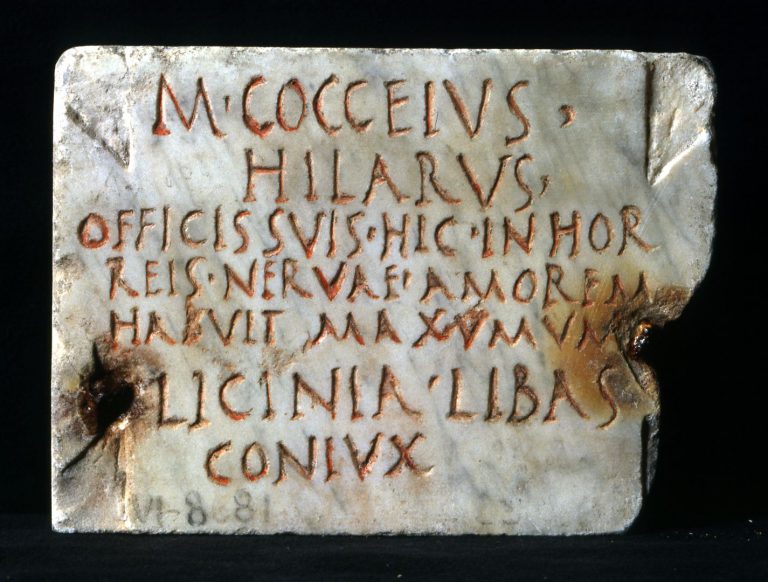 M·COCCEIVS,
HILARVS,
OFFICISSVIS·HIC·INHOR
REIS·NERVAE·AMOREM
HABVIT,MAXVMVM
LICINIA·LIBAS
CONIVX